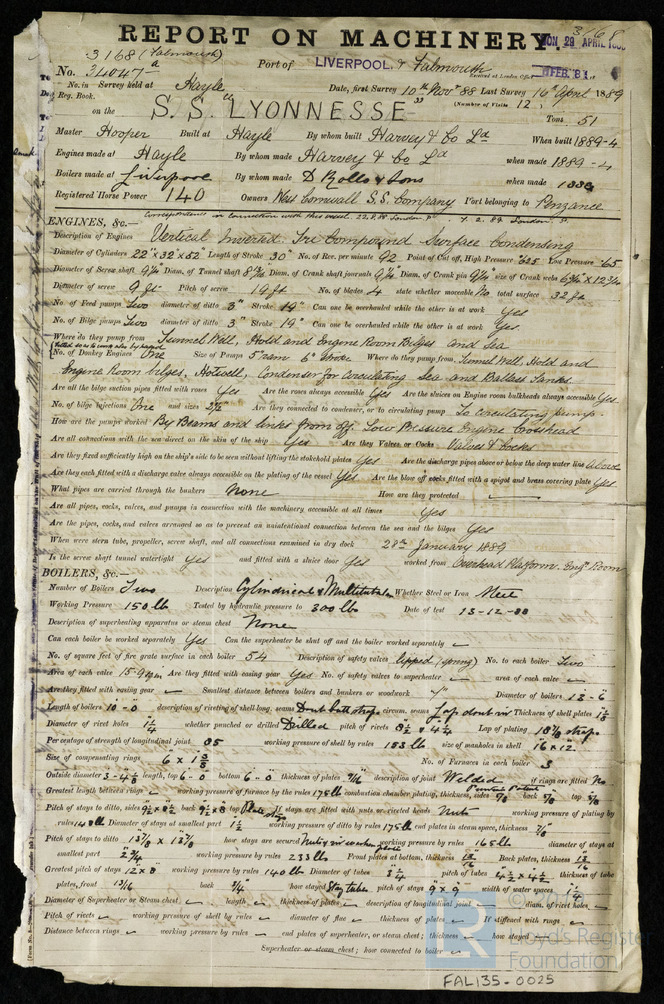 REPORT ON MACHINERY.
3168
MON 29 APRIL
3168 (Falmouth)
No. 34047 a
Port of LIVERPOOL & Falmouth
Received at London Office
FEB. 81
No. in Survey held at Hayle Date, first Survey 10th Novr 88 Last Survey 16th April 1889
Reg. Book. (Number of Visits 12)
on the S. S. "LYONNESSE" Tons 51
Master Hooper Built at Hayle By whom built Harvey & Co Ld When built 1889-4
Engines made at Hayle By whom made Harvey & Co Ld when made 1889-4
Boilers made at Liverpool By whom made D Rollo & Sons when made 1889
Registered Horse Power 140 Owners West Cornwall S.S. Company Port belonging to Penzance
Correspondence in connection with this vessel 22.8.88 London
ENGINES, &c.—
Description of Engines Vertical Inverted Tri Compound Surface Condensing
Diameter of Cylinders 22" x 32" x 52" Length of Stroke 30" No. of Rev. per minute 92 Point of Cut off, High Pressure .625 Low Pressure .65
Diameter of Screw shaft Diam. of Tunnel shaft Diam. of Crank shaft journals Diam. of Crank pin size of Crank webs
Diameter of screw 9 ft Pitch of screw 19 ft No. of blades 4 state whether moveable No total surface 32 ft
No. of Feed pumps Two diameter of ditto 3" Stroke 19" Can one be overhauled while the other is at work Yes
No. of Bilge pumps Two diameter of ditto 3" Stroke 19" Can one be overhauled while the other is at work Yes
Where do they pump from Tunnel Well, Hold and Engine Room Bilges and Sea
No. of Donkey Engines One Size of Pumps 5" ram 6" stroke Where do they pump from Tunnel Well, Hold and
Engine Room bilges, Hotwell, Condenser for circulating Sea and Ballast Tanks.
Are all the bilge suction pipes fitted with roses Yes Are the roses always accessible Yes Are the sluices on Engine room bulkheads always accessible Yes
No. of bilge injections One and size 2½" Are they connected to condenser, or to circulating pump To circulating pump.
How are the pumps worked By Beams and links from off Low Pressure Engine Crosshead
Are all connections with the sea direct on the skin of the ship Yes Are they Valves or Cocks Valves & Cocks
Are they fixed sufficiently high on the ship's side to be seen without lifting the stokehold plates Yes Are the discharge pipes above or below the deep water line Above
Are they each fitted with a discharge valve always accessible on the plating of the vessel Yes Are the blow off cocks fitted with a spigot and brass covering plate Yes
What pipes are carried through the bunkers None How are they protected —
Are all pipes, cocks, valves, and pumps in connection with the machinery accessible at all times Yes
Are the pipes, cocks, and valves arranged so as to prevent an unintentional connection between the sea and the bilges Yes
When were stern tube, propeller, screw shaft, and all connections examined in dry dock January 1889
Is the screw shaft tunnel watertight Yes and fitted with a sluice door Yes worked from Overhead Platform. Engine Room
BOILERS, &c.—
Number of Boilers Two Description Cylindrical & Multitubular Whether Steel or Iron Steel
Working Pressure 150 lb Tested by hydraulic pressure to 300 lbs Date of test 13-12-88
Description of superheating apparatus or steam chest None
Can each boiler be worked separately Yes Can the superheater be shut off and the boiler worked separately —
No. of square feet of fire grate surface in each boiler 54 Description of safety valves lipped (spring) No. to each boiler Two
Area of each valve Are they fitted with easing gear Yes No. of safety valves to superheater — area of each valve —
Are they fitted with easing gear — Smallest distance between boilers and bunkers or woodwork Diameter of boilers 13-6
Length of boilers 10-0 description of riveting of shell long. seams Dbut butt straps circum. seams Lap doubt riv Thickness of shell plates
Diameter of rivet holes 1¼ whether punched or drilled Drilled pitch of rivets Lap of plating straps
Per centage of strength of longitudinal joint 85 working pressure of shell by rules 153 lb size of manholes in shell 16 x 12"
Size of compensating rings No. of Furnaces in each boiler 3
Outside diameter length, top 6-0 bottom 6-0 thickness of plates 9/16 description of joint Welded if rings are fitted No
Greatest length between rings — working pressure of furnace by the rules 175 lb combustion chamber plating, thickness, sides 5/8 back 5/8 top 5/8
Pitch of stays to ditto, sides back top If stays are fitted with nuts or riveted heads Nuts working pressure of plating by
rules Diameter of stays at smallest part 1½ working pressure of ditto by rules 175 lb end plates in steam space, thickness 7/8
Pitch of stays to ditto 13 7/8 x 13 7/8 how stays are secured working pressure by rules 165 lb diameter of stays at
smallest part 2¼ working pressure by rules 233 lb Front plates at bottom, thickness Back plates, thickness
Greatest pitch of stays 12 x 8 working pressure by rules 140 lb Diameter of tubes 3¼ pitch of tubes 4½ x 4½ thickness of tube
plates, front 13/16 back ¾ how stayed Stay tubes pitch of stays 9 x 9 width of water spaces 1¼
Diameter of Superheater or Steam chest — length — thickness of plates — description of longitudinal joint — diam. of rivet holes —
Pitch of rivets — working pressure of shell by rules — diameter of flue — thickness of plates — If stiffened with rings —
Distance between rings — working pressure by rules — end plates of superheater, or steam chest; thickness — how stayed —
Superheater or steam chest; how connected to boiler —
© Lloyd's Register
Foundation
LR
FAL135-0025